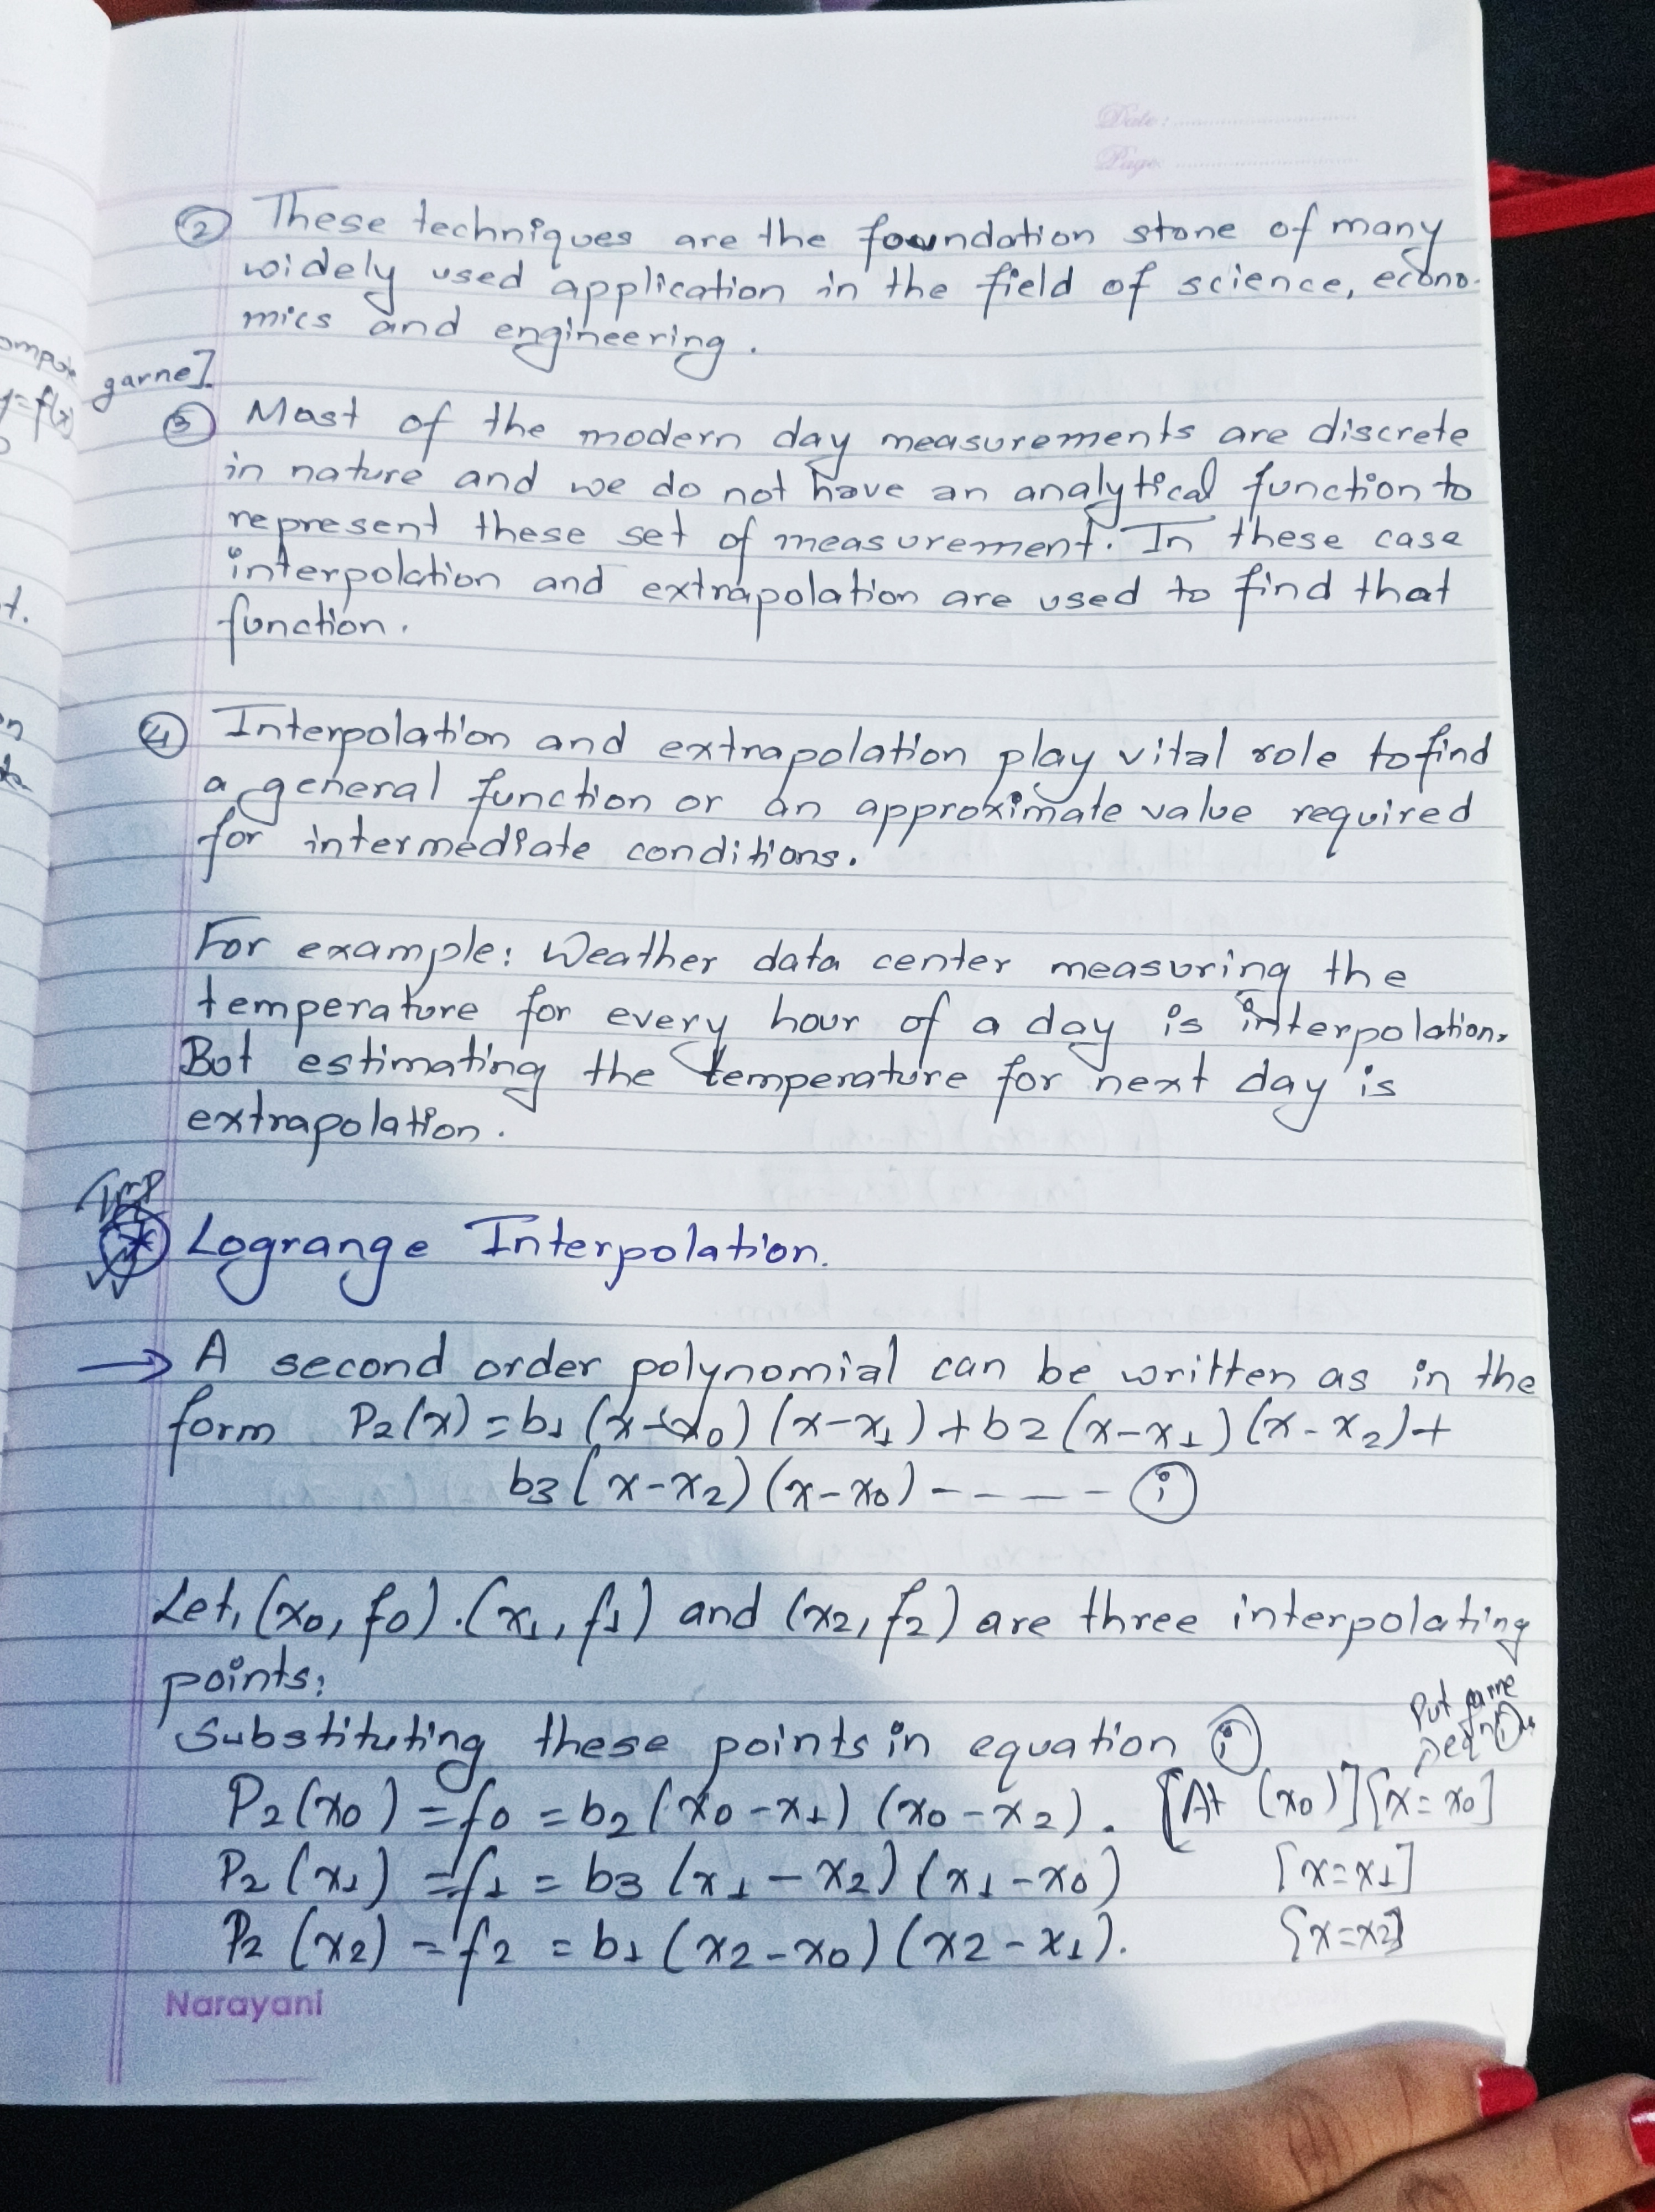 Date:
Page:
② These techniques are the foundation stone of many
widely used application in the field of science, econo-
mics and engineering.
garne]
y=f(x)
③ Most of the modern day measurements are discrete
in nature and we do not have an analytical function to
represent these set of measurement. In these case
interpolation and extrapolation are used to find that
function.
④ Interpolation and extrapolation play vital role to find
a general function or an approximate value required
for intermediate conditions.
For example: Weather data center measuring the
temperature for every hour of a day is interpolation.
But estimating the temperature for next day is
extrapolation.
Imp
Logrange Interpolation.
→ A second order polynomial can be written as in the
form P2(x) = b1 (x-x0) (x-x1) + b2 (x-x1) (x-x2) +
b3 (x-x2) (x-x0) ----- ⓘ
Let, (x0, f0). (x1, f1) and (x2, f2) are three interpolating
points:
Put
Substituting these points in equation ⓘ
P2(x0) = f0 = b2 (x0-x1) (x0-x2). [At (x0)] [x=x0]
P2(x1) = f1 = b3 (x1-x2) (x1-x0) [x=x1]
P2 (x2) = f2 = b1 (x2-x0) (x2-x1). [x=x2]
Narayani